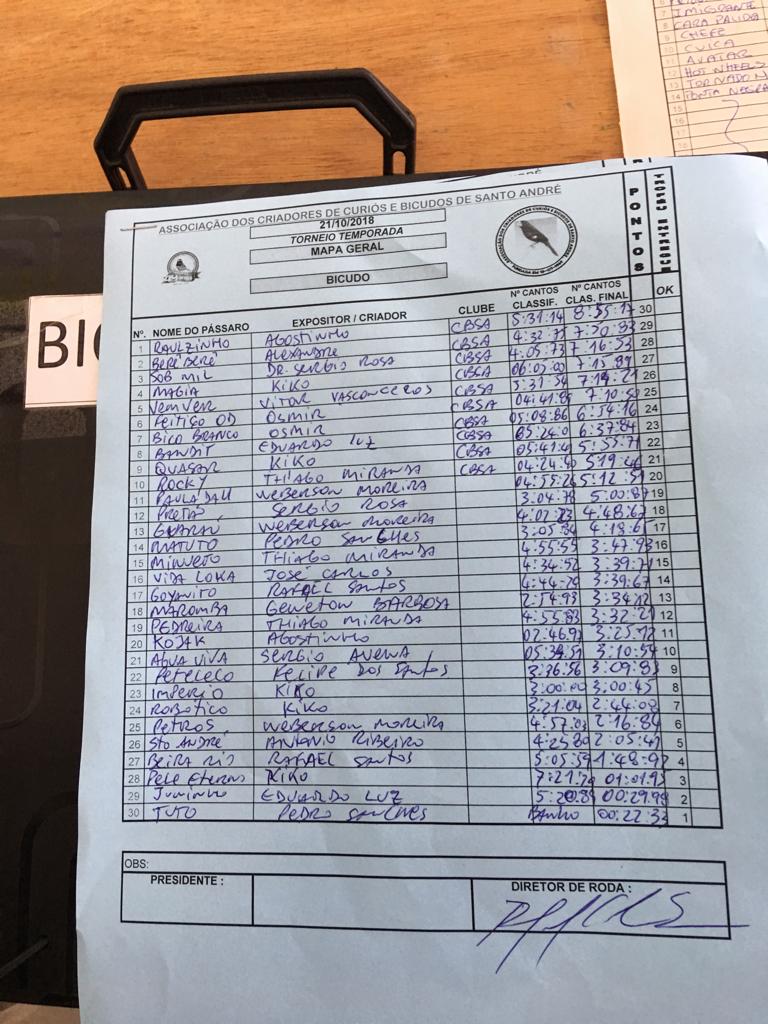 IMIGRANTE
8 CARA PALIDA
9 CHEFE
10 CUICA
11 AVATAR
12 HOT WHEELS
13 TORNADO
14 PONTA NEGRA
15
16
17
ASSOCIAÇÃO DOS CRIADORES DE CURIÓS E BICUDOS DE SANTO ANDRÉ
21/10/2018
TORNEIO TEMPORADA
MAPA GERAL
BICUDO
PONTOS
BI
Nº. NOME DO PÁSSARO EXPOSITOR / CRIADOR CLUBE Nº CANTOS CLASSIF. Nº CANTOS CLAS. FINAL OK
1 RAULZINHO AGOSTINHO CBSA 5:31:14 8:55:17 30
2 BERÉBERÉ ALEXANDRE CBSA 4:32:77 7:50:83 29
3 SOB MIL DR. SERGIO ROSA CBSA 4:05:73 7:16:53 28
4 MAGIA KIKO CBSA 06:05:00 7:15:89 27
5 VEMVER VITOR VASCONCELOS CBSA 3:31:54 7:14:21 26
6 FEITIÇO OD OSMIR CBSA 04:41:85 25
7 BICO BRANCO OSMIR CBSA 05:08:86 6:54:16 24
8 BANDIT EDUARDO LUZ CBSA 05:24:0 6:37:84 23
9 QUASAR KIKO CBSA 05:41:4 5:55:71 22
10 ROCKY THIAGO MIRANDA CBSA 04:24:40 519:46 21
11 PAULADAU WEBERSON MOREIRA 04:55:26 5:12:51 20
12 PRETÃS SERGIO ROSA 3:04:78 5:00:87 19
13 GUARAÚ WEBERSON MOREIRA 4:07:23 4:48:67 18
14 MATUTO PEDRO SANCHES 3:05:54 4:18:61 17
15 MINUETO THIAGO MIRANDA 4:55:55 3:47:93 16
16 VIDA LOKA JOSE CARLOS 4:34:52 3:39:71 15
17 GOYANITO RAFAEL SANTOS 4:44:24 3:39:67 14
18 MAROMBA GEWETON BARBOSA 2:54:93 3:34:12 13
19 PEDREIRA THIAGO MIRANDA 4:55:83 3:32:21 12
20 KOJAK AGOSTINHO 02:46:97 3:25:12 11
21 AGUA VIVA SERGIO AVENA 05:39:51 3:10:54 10
22 PETELECO FELIPE DOS SANTOS 3:36:56 3:09:83 9
23 IMPERIO KIKO 3:00:00 3:00:45 8
24 ROBOTICO KIKO 3:21:04 2:44:08 7
25 PETROS WEBERSON MOREIRA 4:57:03 2:16:84 6
26 STO ANDRÉ ANTONIO RIBEIRO 4:25:80 2:05:47 5
27 BEIRA RIO RAFAEL SANTOS 5:05:59 1:48:97 4
28 PELE ETERNO KIKO 7:21:79 01:01:93 3
29 JUNINHO EDUARDO LUZ 5:20:89 00:29:99 2
30 TUTO PEDRO SANCHES BANHO 00:22:32 1
OBS:
PRESIDENTE : DIRETOR DE RODA :